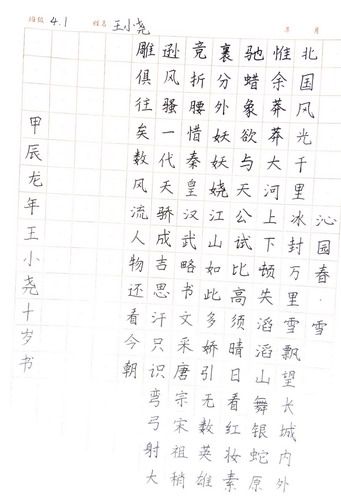 班级 4.1 姓名 王小尧 年 月
沁园春·雪
北国风光千里冰封万里雪飘望长城内外
惟余莽莽大河上下顿失滔滔山舞银蛇原
驰蜡象欲与天公试比高须晴日看红妆素
襄分外妖妖娆江山如此多娇引无数英雄
竞折腰惜秦皇汉武略书文采唐宗宋祖稍
逊风骚一代天骄成吉思汗只识弯弓射大
雕俱往矣数风流人物还看今朝
甲辰龙年王小尧十岁书